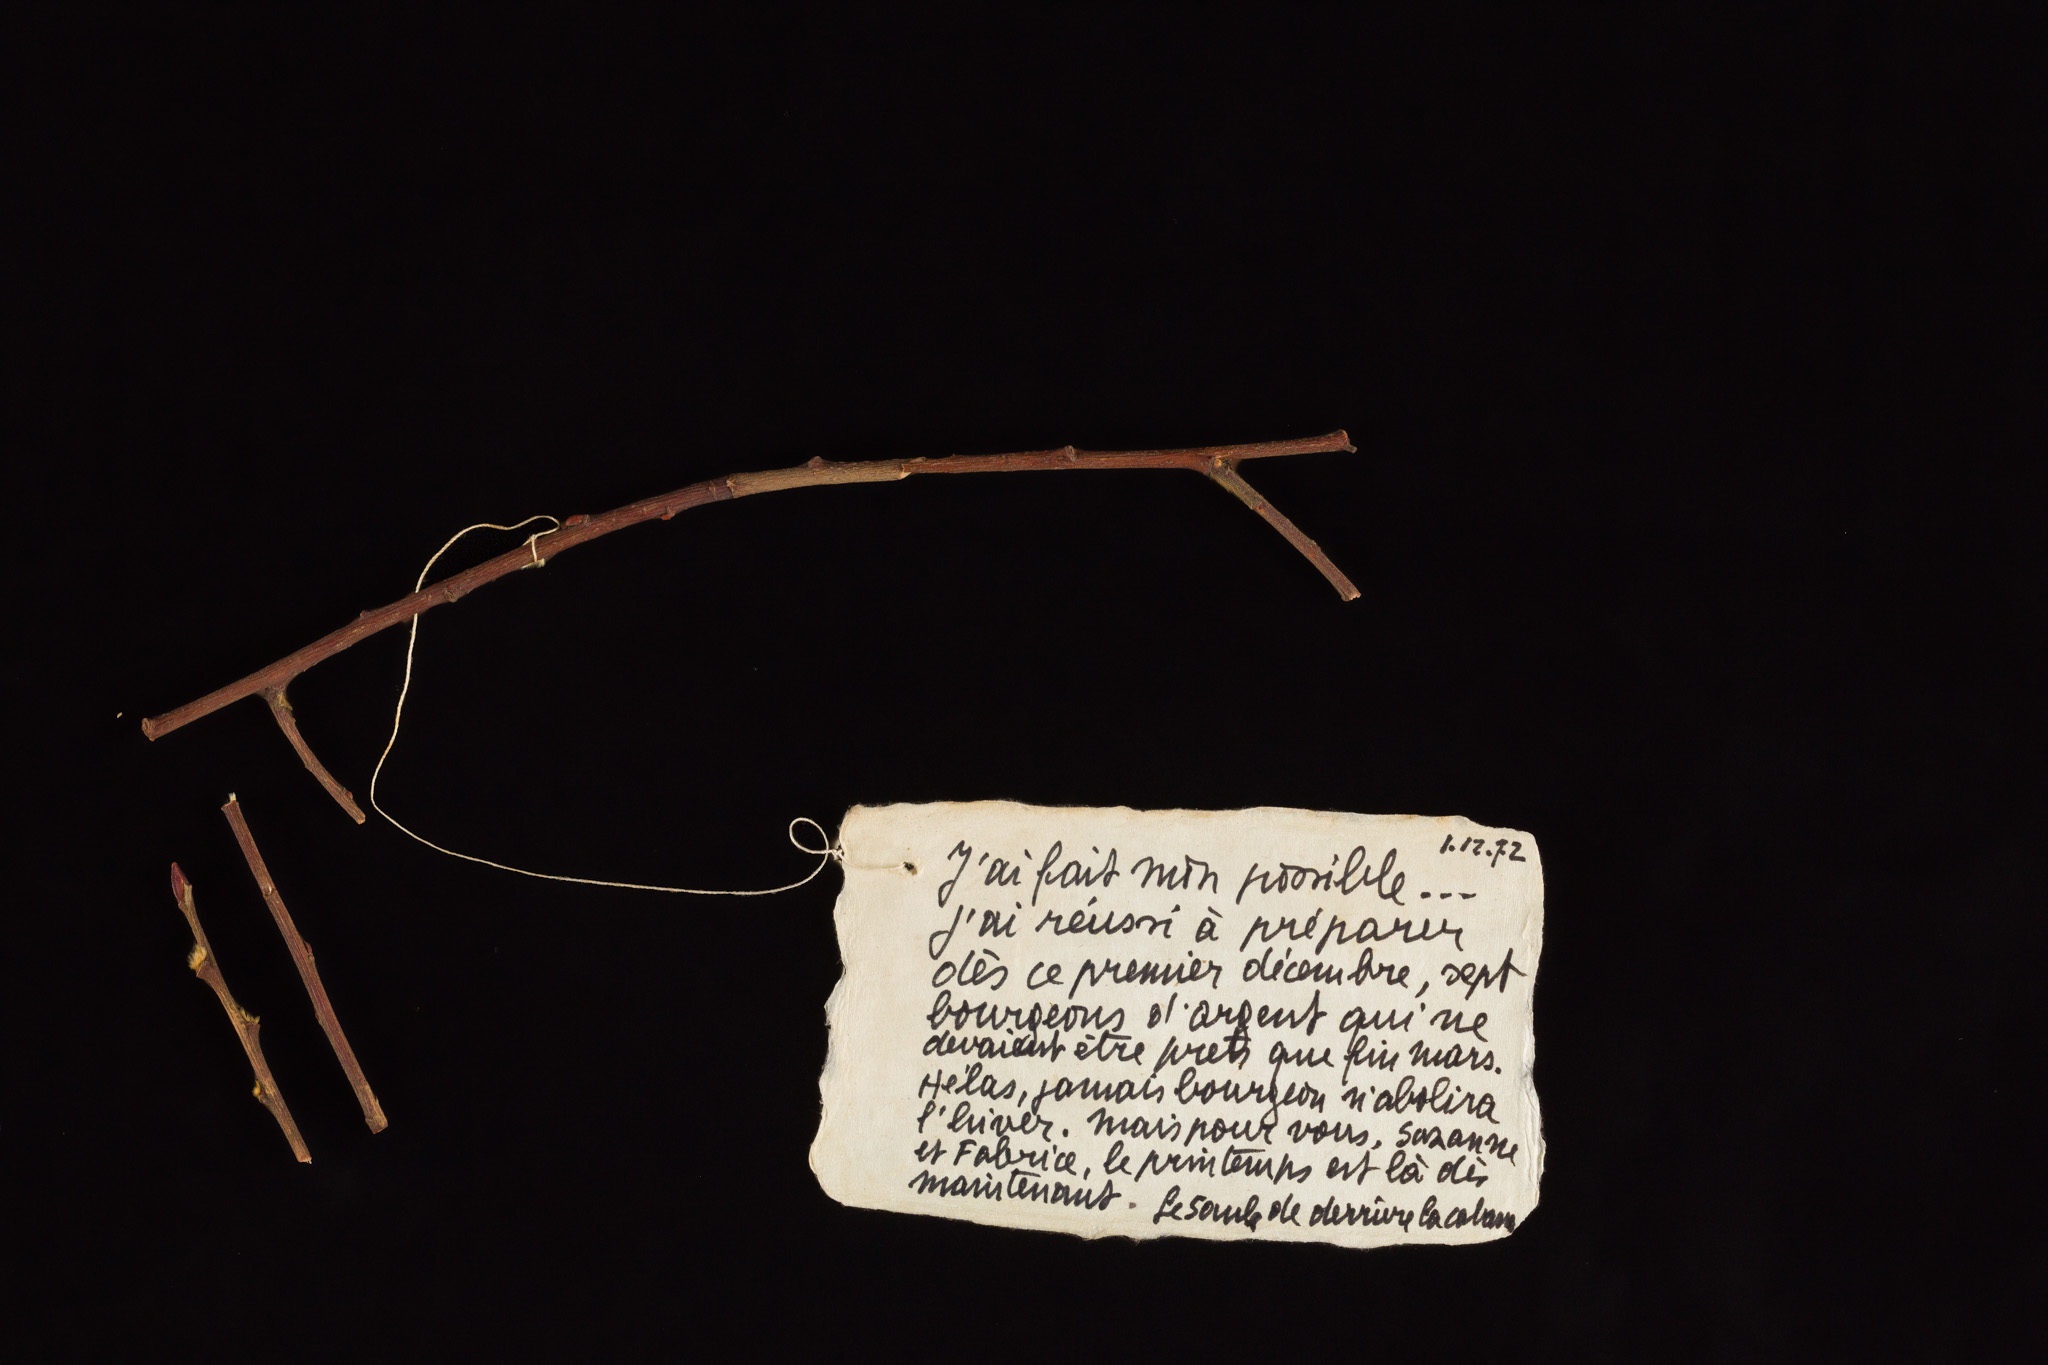 1.12.72
J'ai fait mon possible...
J'ai réussi à préparer
dès ce premier décembre, sept
bourgeons d'argent qui ne
devaient être prets que fin mars.
Hélas, jamais bourgeon n'abolira
l'hiver. Mais pour vous, Suzanne
et Fabrice, le printemps est là dès
maintenant. Le Saule de derrière la cabane